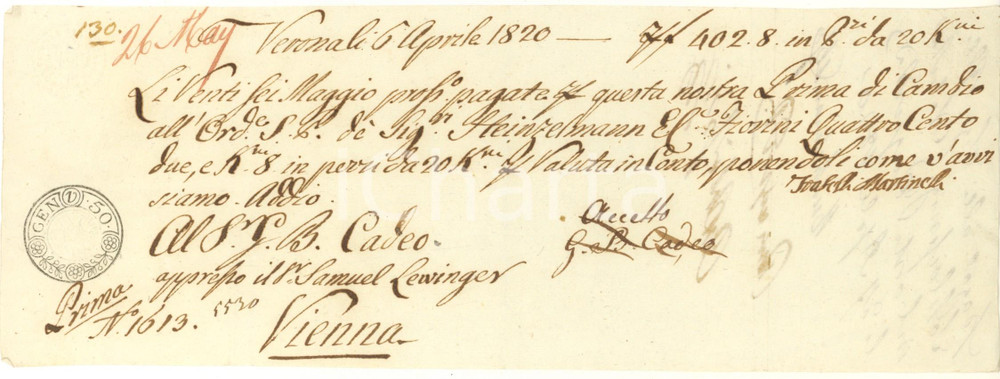 130.
26 May Verona li 6 Aprile 1820 — 402.8. in P.ri da 20 K.ni
Li Venti sei Maggio pross.o pagate questa nostra Prima di Cambio
all'Ord.e S. P. de Sig.ri Heinzelmann E C.o Fiorini Quattro Cento
due, e K.ni 8 in pezzi da 20 K.ni Valuta in Conto, ponendoli come v'avvi
siamo. Addio.
Fratelli Martinelli
GEN 50.
Al S.r G. B. Cadeo.
Accetto
G. B. Cadeo
appresso il Sr. Samuel Lewinger
Prima
No. 1613. 5520
Vienna
iCharta